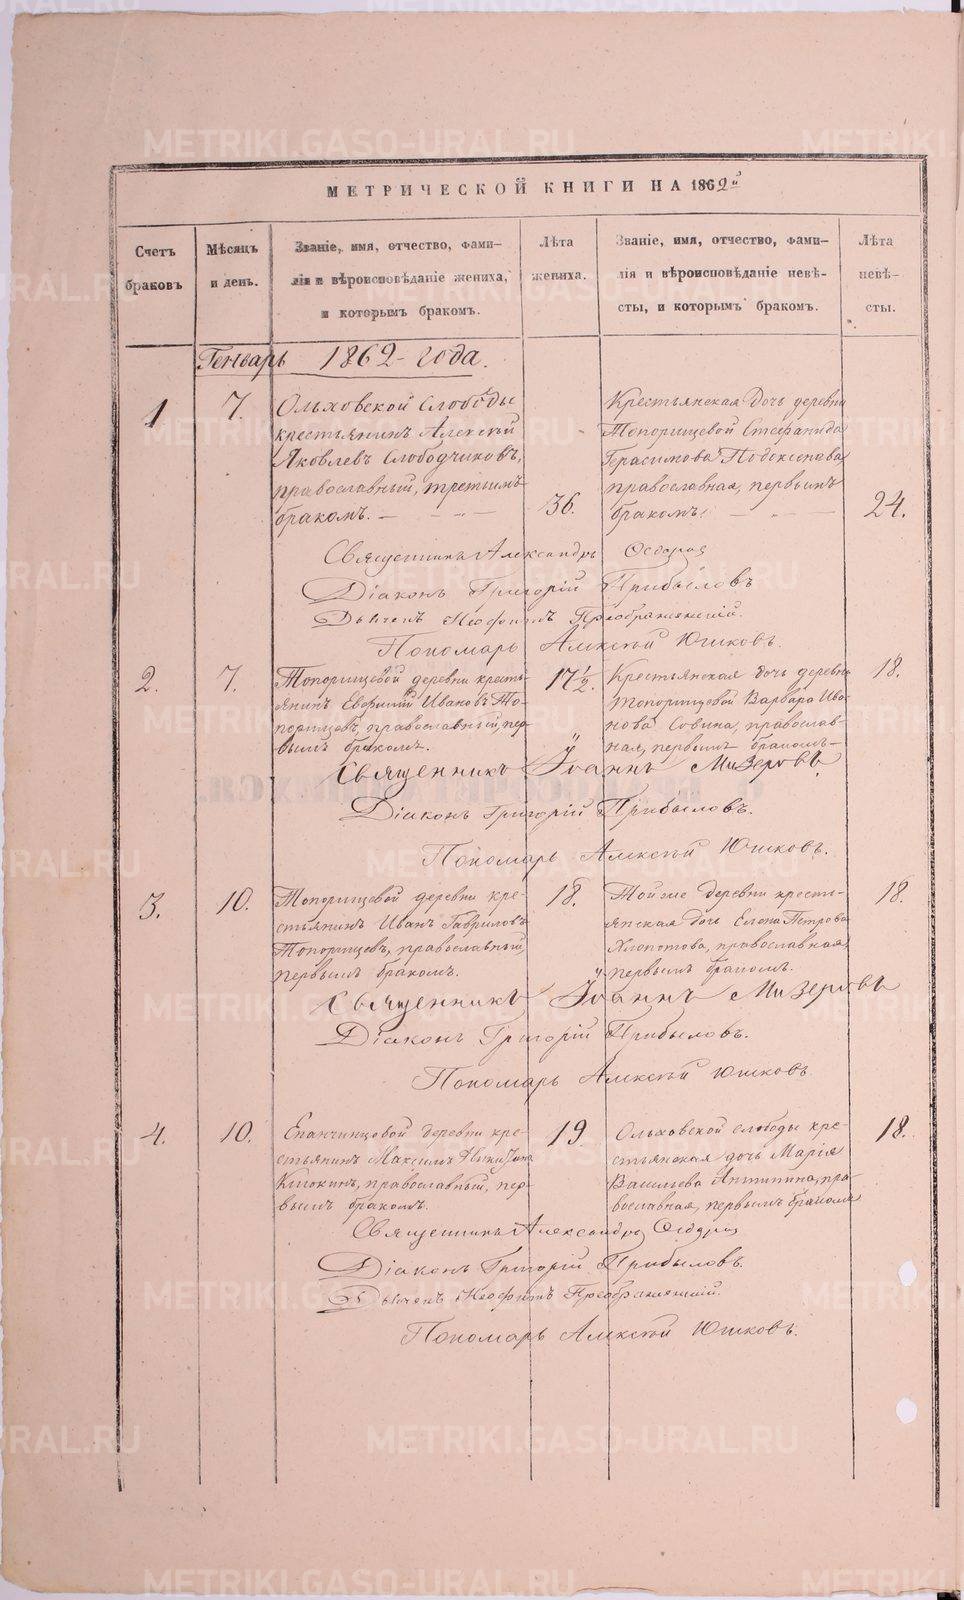 МЕТРИЧЕСКОЙ КНИГИ НА 1862й
Счетъ
браковъ
Мѣсяцъ
и день.
Званіе, имя, отчество, фами-
лія и вѣроисповѣданіе жениха,
и которымъ бракомъ.
Лѣта
жениха.
Званіе, имя, отчество, фами-
лія и вѣроисповѣданіе невѣ-
сты, и которымъ бракомъ.
Лѣта
невѣ-
сты.
Генварь 1862 года.
1
7.
Ольховской Слободы
крестьянинъ Алексѣй
Яковлевъ Слободчиковъ,
православный, третьимъ
бракомъ.
36.
Крестьянская дочь деревни
Топорищевой Стефанида
Герасимова
православная, первымъ
бракомъ.
24.
Священникъ Александръ
Діаконъ Григорій Прибыловъ
Дьячекъ Неофитъ Преображенскій.
Пономарь Алексѣй Юшковъ.
2.
7.
Топорищевой деревни кресть-
янинъ Евфимій Ивановъ То-
порищевъ, православный, пер-
вымъ бракомъ.
17½.
Крестьянская дочь деревни
Топорищевой Варвара Ива-
нова Совина, православ-
ная, первымъ бракомъ
18.
Священникъ Іоаннъ Мизеровъ
Діаконъ Григорій Прибыловъ.
Пономарь Алексѣй Юшковъ.
3.
10.
Топорищевой деревни кре-
стьянинъ Иванъ Гавриловъ
Топорищевъ, православный,
первымъ бракомъ.
18.
Тойже деревни кресть-
янская дочь Елена Петрова
Хлопотова, православная,
первымъ бракомъ.
18.
Священникъ Іоаннъ Мизеровъ
Діаконъ Григорій Прибыловъ.
Пономарь Алексѣй Юшковъ
4.
10.
Епанчинцовой деревни кре-
стьянинъ Максимъ Никитинъ
православный, пер-
вымъ бракомъ.
19.
Ольховской слободы кре-
стьянская дочь Марія
Васильева Антипина, пра-
вославная, первымъ бракомъ
18.
Священникъ Александръ
Діаконъ Григорій Прибыловъ.
Дьячекъ Неофитъ Преображенскій.
Пономарь Алексѣй Юшковъ.
METRIKI.GASO-URAL.RU